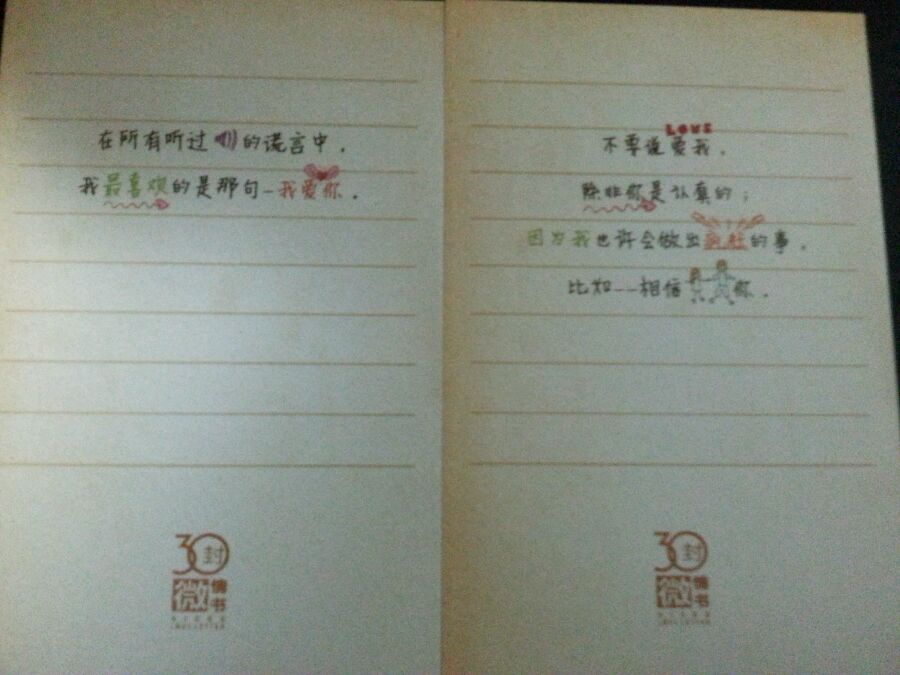 在所有听过的谎言中，
我最喜欢的是那句–我爱你．
30封
微情书
LOVE
不要说爱我．
除非你是认真的；
因为我也许会做出疯狂的事．
比如––相信你．
30封
微情书